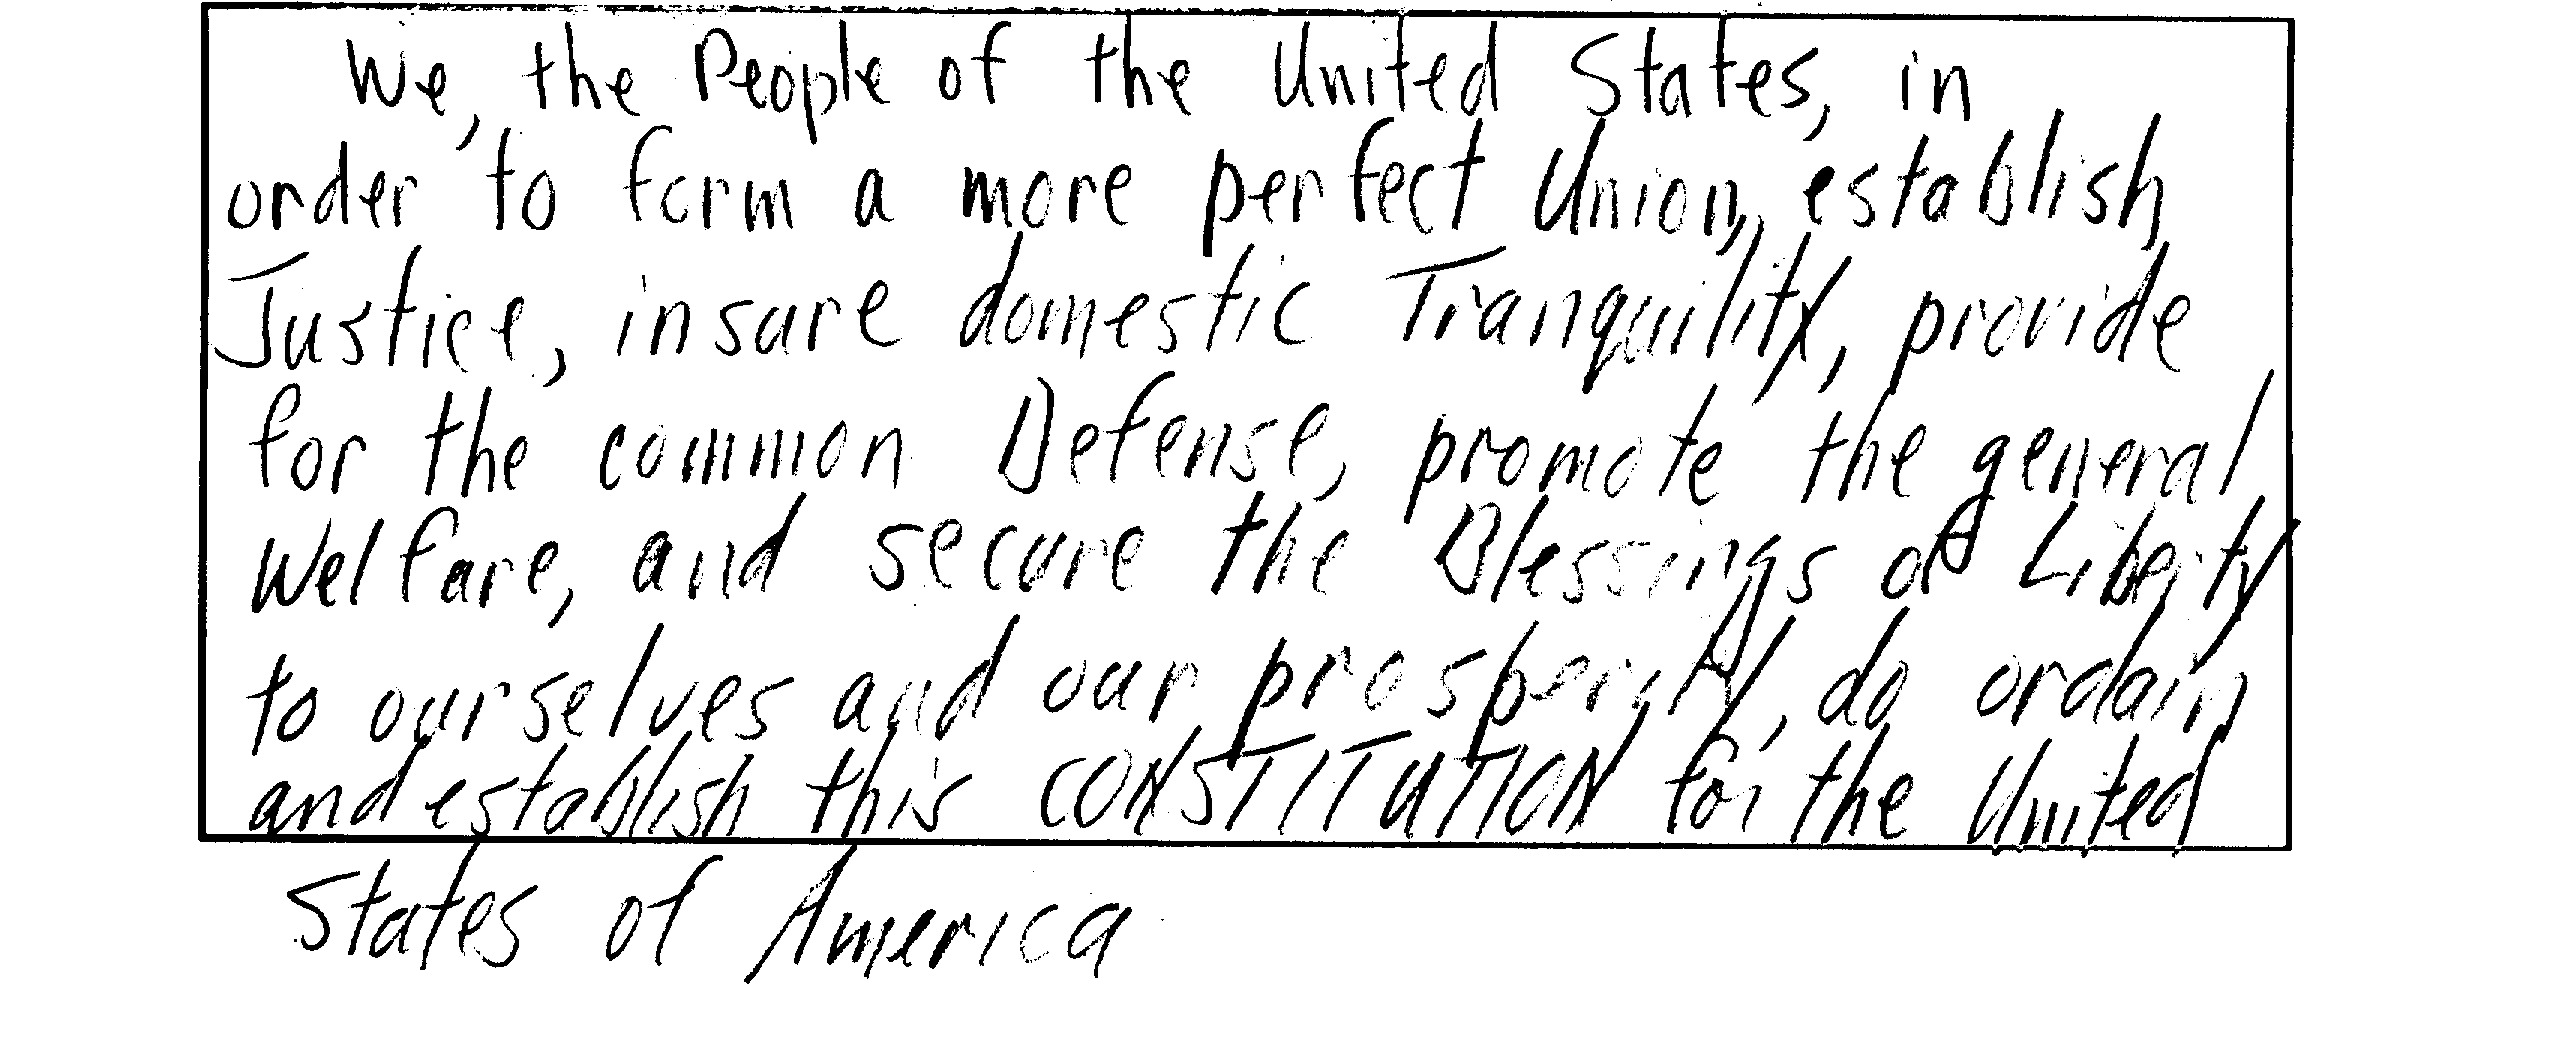 We, the People of the United States, in
order to form a more perfect Union, establish
Justice, insure domestic Tranquility, provide
for the common Defense, promote the general
Welfare, and secure the Blessings of Liberty
to ourselves and our prosperity, do ordain
and establish this CONSTITUTION for the United
States of America